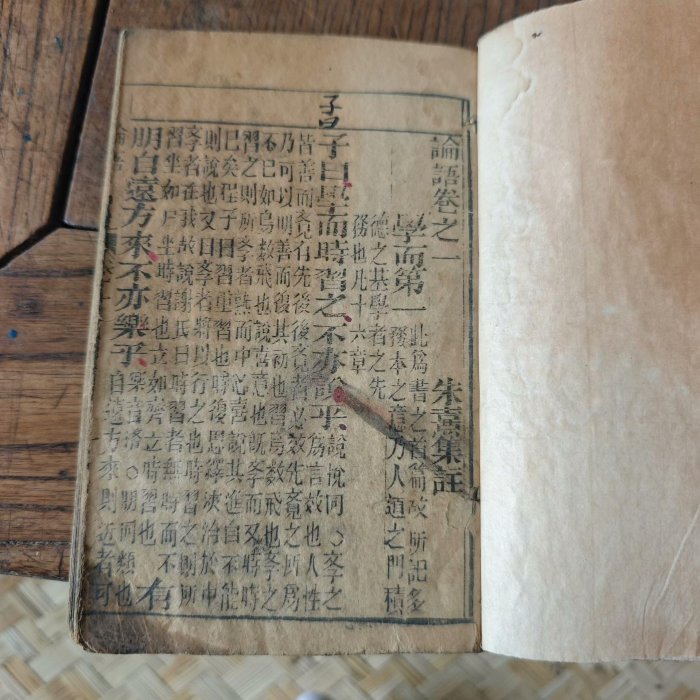 子曰
論語卷之一 朱熹集註
學而第一
此為書之首篇故所記多
務本之意乃人道之門積
德之基學者之先
務也凡十六章
子曰學而時習之不亦說乎
說悅同○斈之
為言效也人性
皆善而斍有先後後斍者必效先斍之所為
乃可以明善而復其初也習鳥數飛也斈之
不已如鳥數飛也說喜意也既斈而又時時
習之則所斈者熟而中心喜說其進自不能
已矣程子曰習重習也時復思繹浹洽於中
則說也又曰斈者將以行之也時習之則所
斈者在我故說謝氏曰時習者無時而不
習坐如尸坐時習也立如齊立時習也 有
朋自遠方來不亦樂乎
樂音洛○朋同類也
自遠方來則近者可
論語